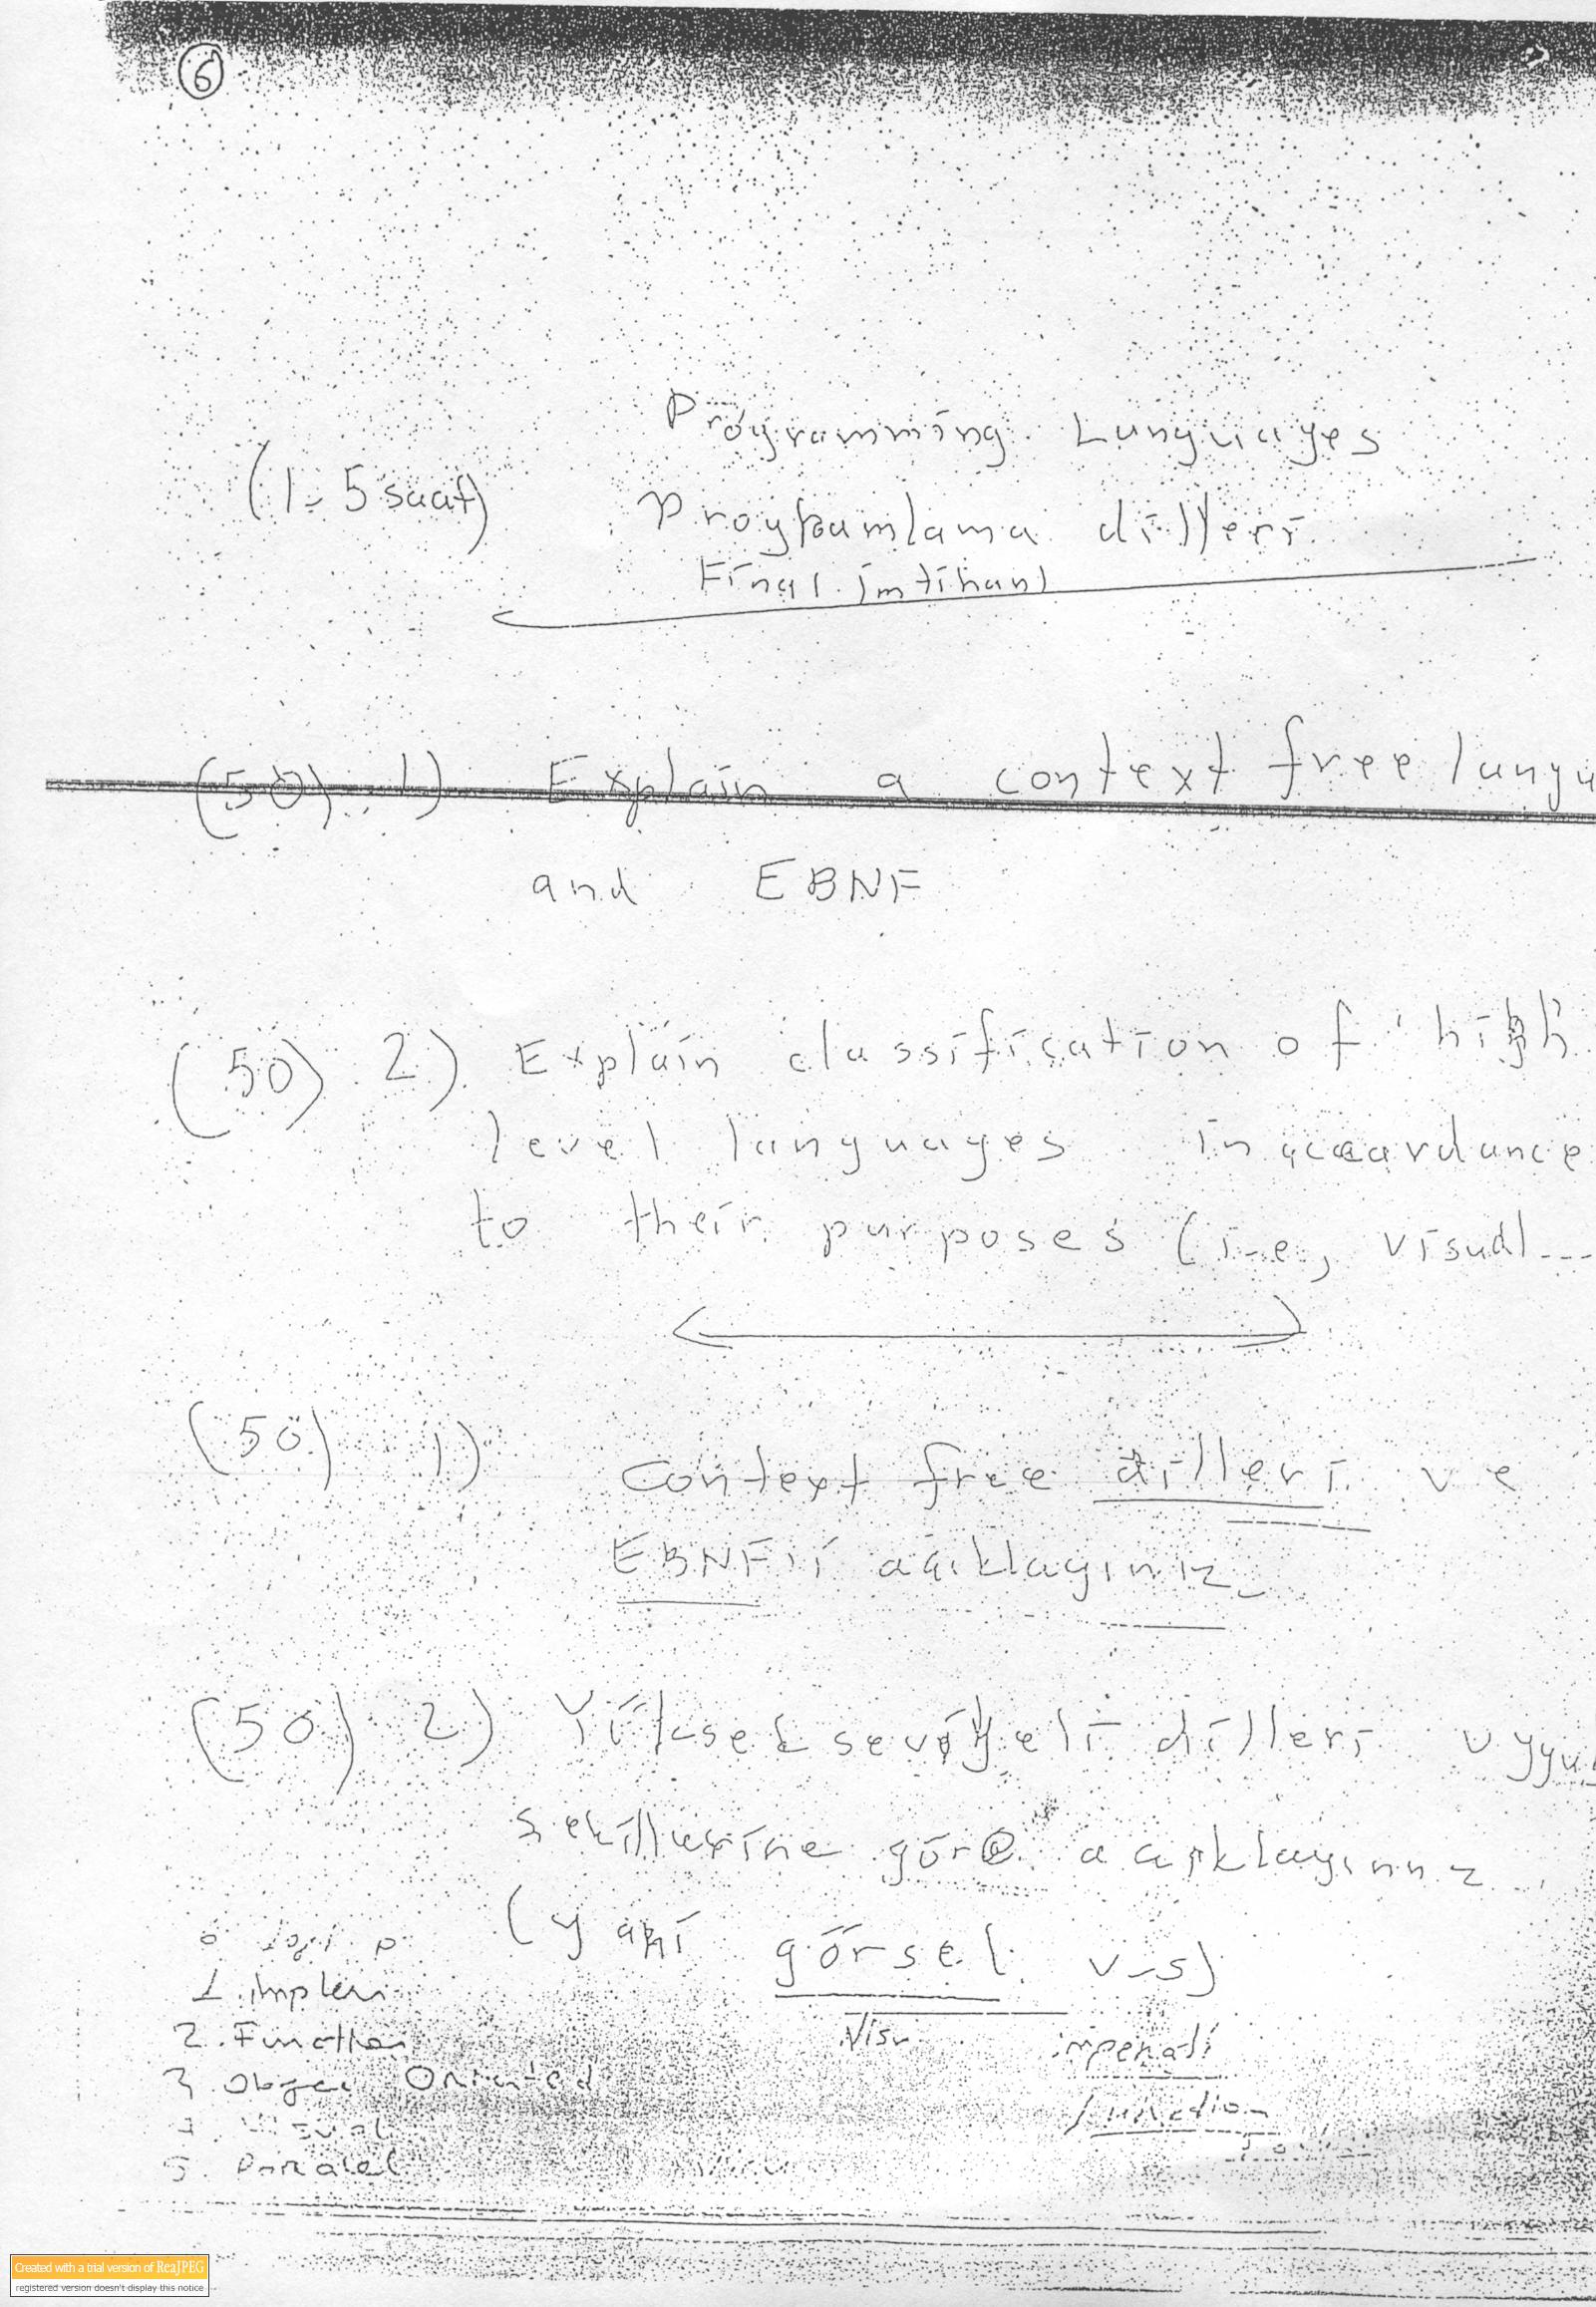 6
Programming Languages
(1.5 saat)
Programlama dilleri
Final imtihanı
(50) 1) Explain a context free langu
and EBNF
(50) 2) Explain classification of high
level languages in accordance
to their purposes (i.e, visual...
(50) 1) Context free dilleri ve
EBNF'i açıklayınız.
(50) 2) Yüksek seviyeli dilleri uygu
şekillerine göre açıklayınız
(yani görsel v.s)
1. implem
2. Function
3. Objec Oriented
4. Visual
5. Paralel
Visu
imperati
function
Created with a trial version of ReaJPEG
registered version doesn't display this notice